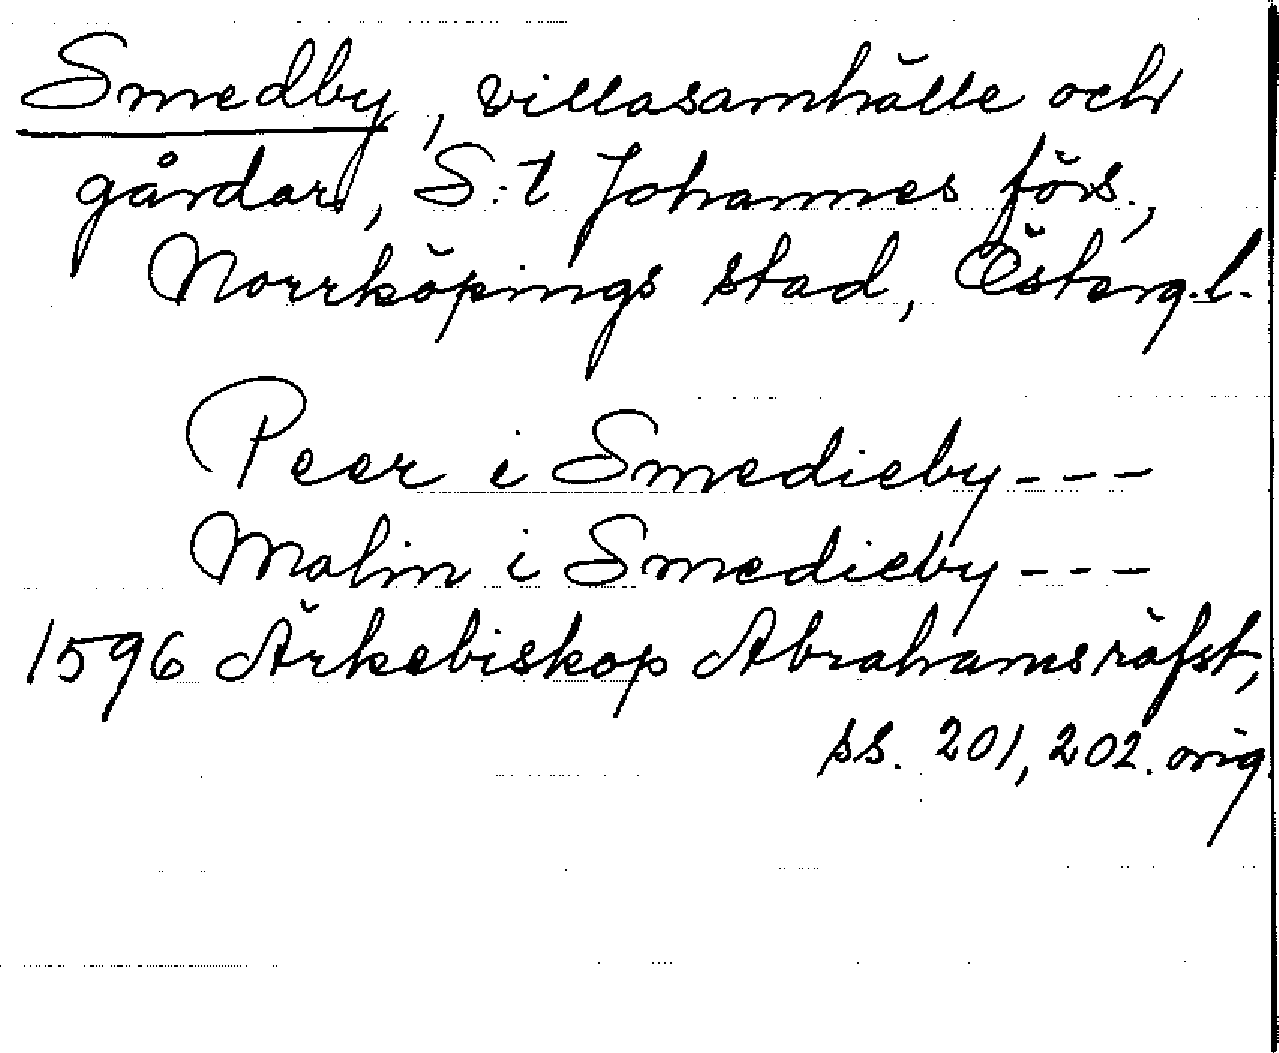 Smedby, villasamhälle och
gårdar, S:t Johannes förs.,
Norrköpings stad, Österg.l.
Peer i Smedieby---
Malin i Smedieby---
1596 Ärkebiskop Abrahams räfst,
ss. 201, 202. orig.